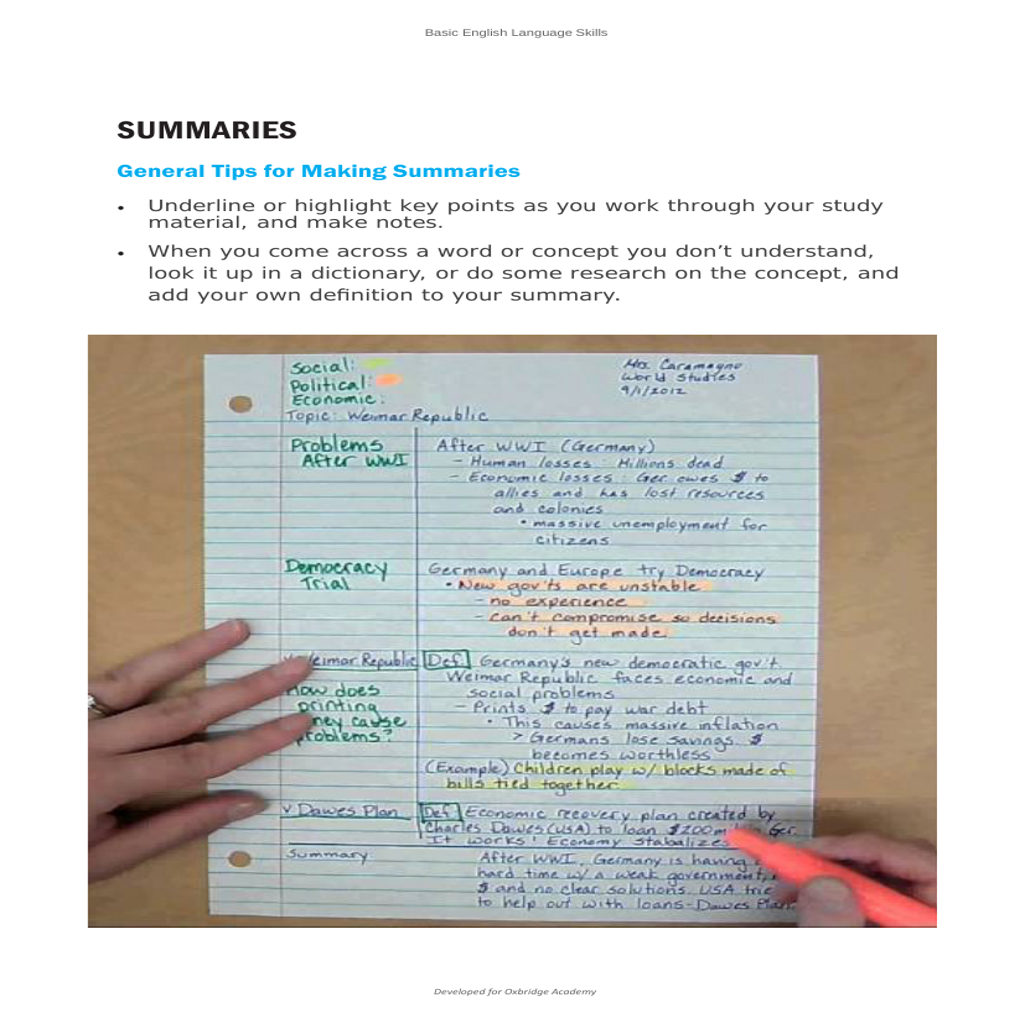 Basic English Language Skills
SUMMARIES
General Tips for Making Summaries
• Underline or highlight key points as you work through your study
material, and make notes.
• When you come across a word or concept you don’t understand,
look it up in a dictionary, or do some research on the concept, and
add your own definition to your summary.
Social:
Political:
Economic:
Topic: Weimar Republic
Mrs. Caramagno
World Studies
9/1/2012
Problems
After WWI
After WWI (Germany)
- Human losses: Millions dead
- Economic losses: Ger. owes $ to
allies and has lost resources
and colonies
• massive unemployment for
citizens
Democracy
Trial
Germany and Europe try Democracy
• New gov'ts are unstable
- no experience
- can't compromise so decisions
don't get made.
Weimar Republic
Def. Germany's new democratic gov't.
Weimar Republic faces economic and
social problems
How does
printing
cause
problems?
- Prints $ to pay war debt
• This causes massive inflation
> Germans lose savings. $
becomes worthless
(Example) Children play w/ blocks made of
bills tied together.
v Dawes Plan
Def. Economic recovery plan created by
Charles Dawes (USA) to loan $200 Ger.
It works! Economy stabalizes
Summary:
After WWI, Germany is having
hard time w/ a weak government,
$ and no clear solutions. USA
to help out with loans-Dawes Plan.
Developed for Oxbridge Academy